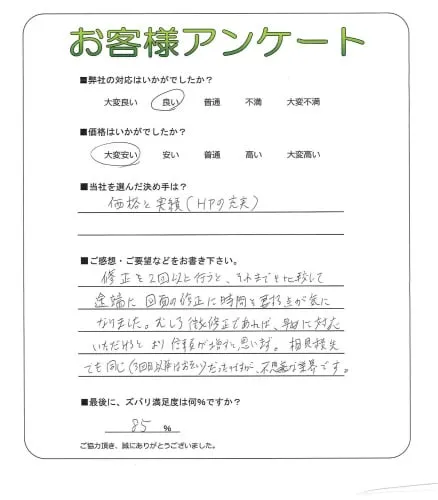 お客様アンケート
■弊社の対応はいかがでしたか?
大変良い 良い 普通 不満 大変不満
■価格はいかがでしたか?
大変安い 安い 普通 高い 大変高い
■当社を選んだ決め手は?
価格と実績(HPの充実)
■ご感想・ご要望などをお書き下さい。
修正を2回以上行うと、それまでと比較して
途端に図面の修正に時間を要する点が気に
なりました。むしろ微修正であれば、早めに対応
いただけると より信頼が増すと思います。相見積先
でも同じ(3回目以降はお払い)だったはずが、不思議な業界です。
■最後に、ズバリ満足度は何%ですか?
85 %
ご協力頂き、誠にありがとうございました。